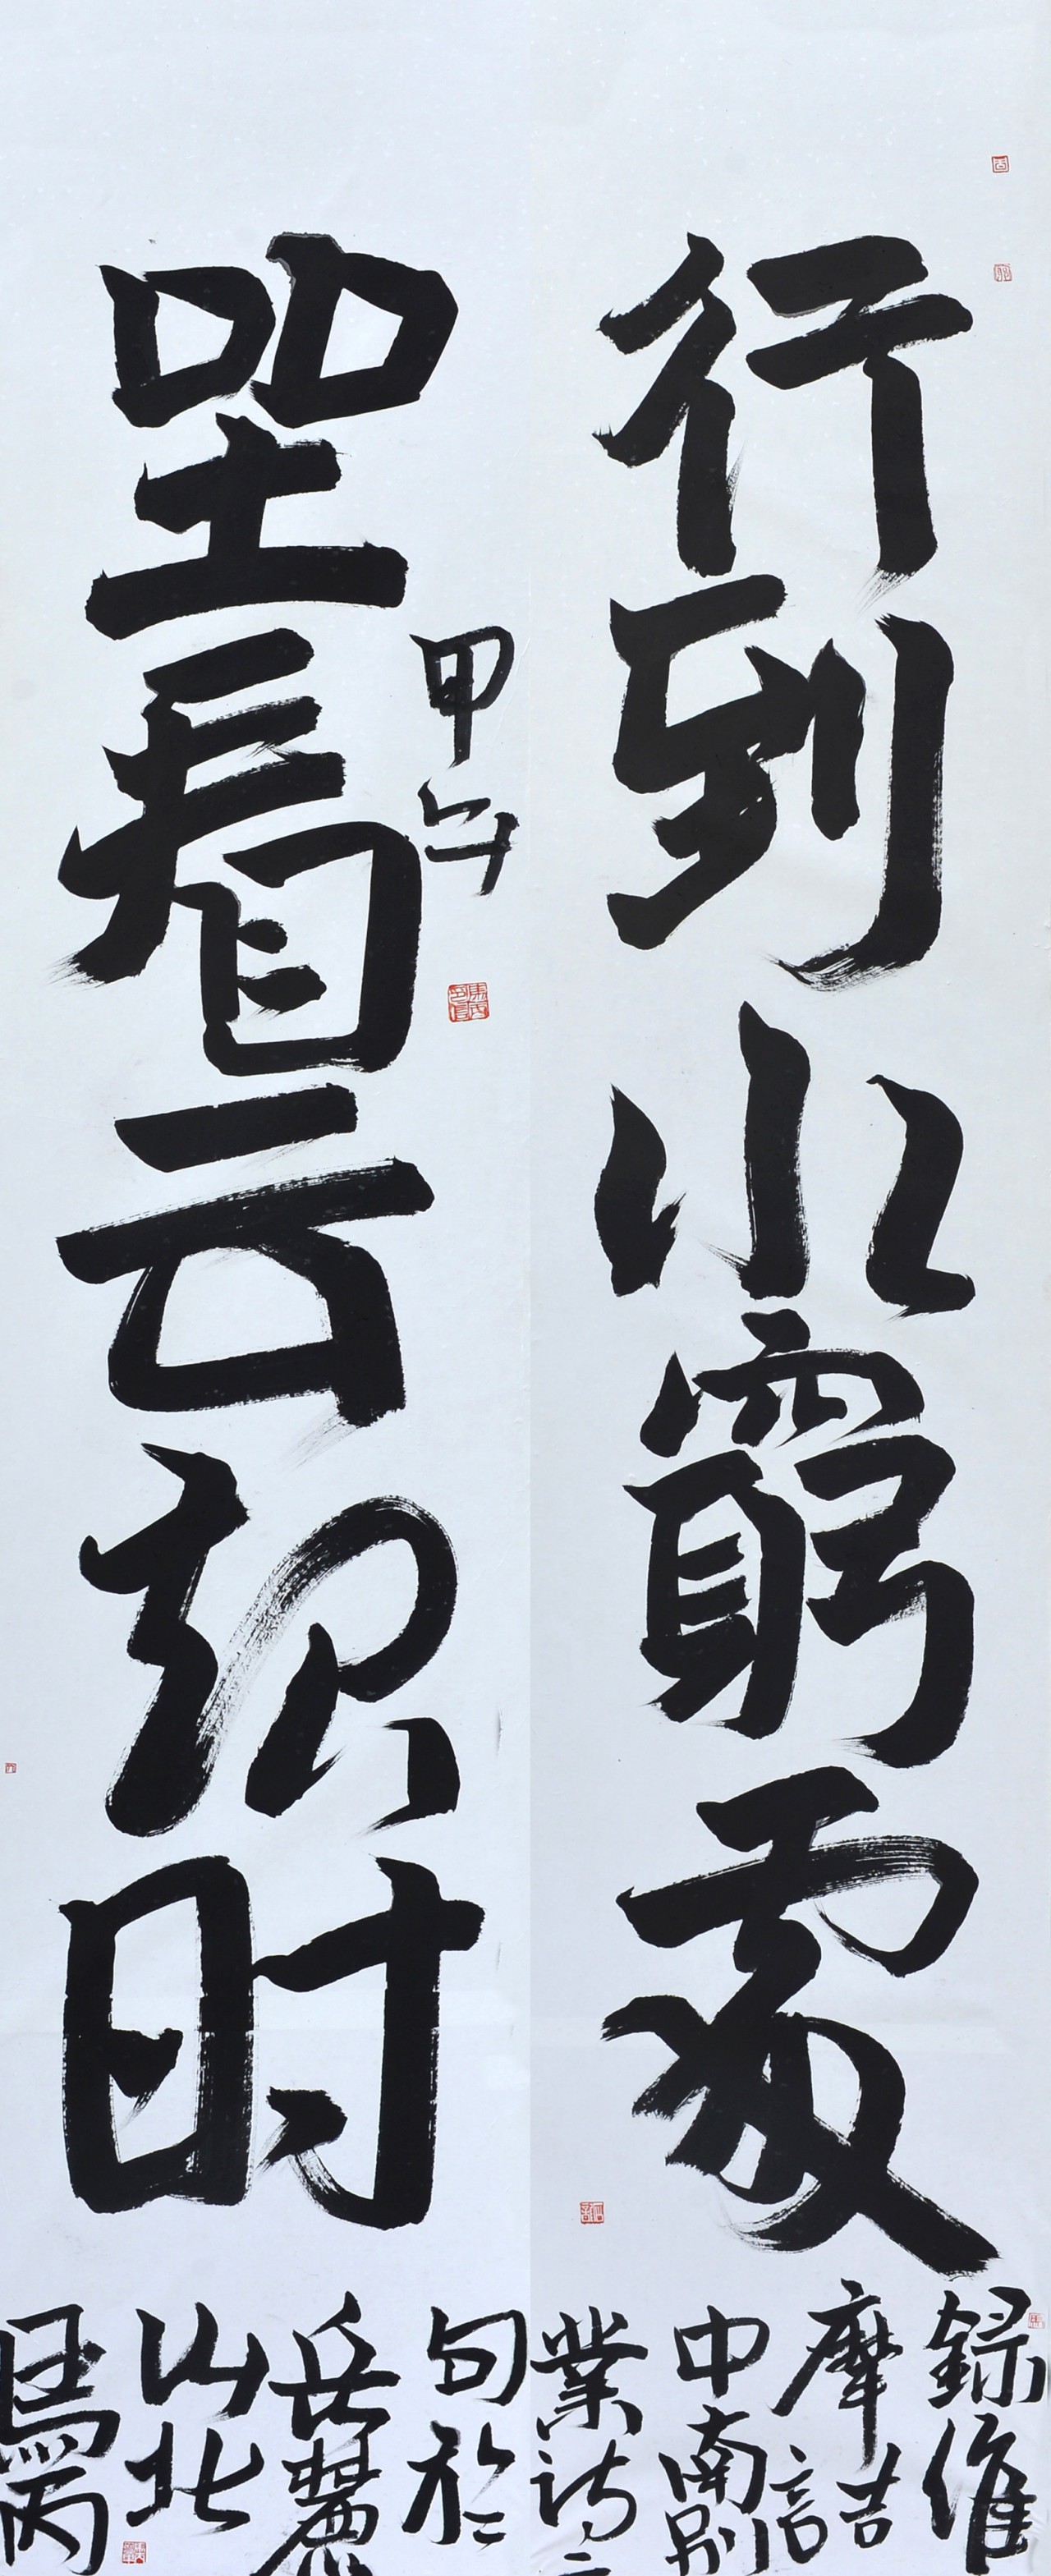 行到水窮處
坐看云起时
録維
摩詰
中南別
業詩二
句於
岳麓
山北
甲午